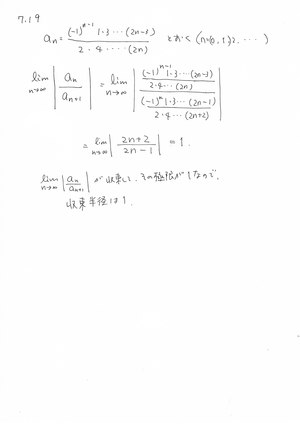 7.19
a_n = \frac{(-1)^{n-1} 1・3・・・(2n-1)}{2・4・・・・(2n)} とおく (n=0, 1, 2, ・・・・)
\lim_{n→∞} |\frac{a_n}{a_{n+1}}| = \lim_{n→∞} |\frac{\frac{(-1)^{n-1} 1・3・・・(2n-3)}{2・4・・・(2n)}}{\frac{(-1)^n 1・3・・・(2n-1)}{2・4・・・(2n+2)}}|
= \lim_{n→∞} |\frac{2n+2}{2n-1}| = 1.
\lim_{n→∞} |\frac{a_n}{a_{n+1}}| が収束して、その極限が1なので、
収束半径は1.